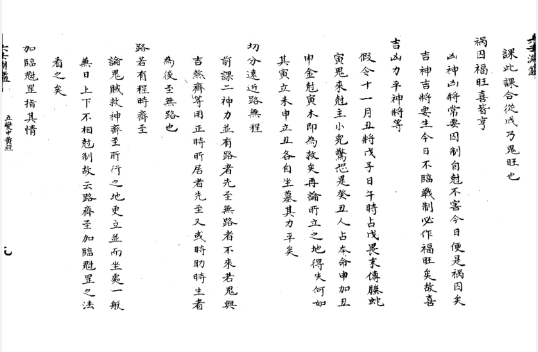 課此課合從戌乃鬼旺也
禍因福旺喜暗亨
凶神凶將常要因制自尅不害今日便是禍因矣
吉神吉將要生今日不臨戰制必作福旺矣故喜
吉凶力平神將等
假令十一月丑將戊子日午時占戊畏末傳螣蛇
寅鬼來尅主小兒驚恐是癸丑人占本命申加丑
申金尅寅木即為救矣再論所立之地得失何如
其寅立未申立丑各自坐墓其力平矣
切分遠近路無程
前課二神力並有路者先至無路者不來若鬼與
吉煞齊等用正時所居者先至又或時助時生者
為後至無路也
路若有程時齊至
論鬼賊救神齊至所行之地更立並而坐夾一般
無日上下不相尅制故云路齊至加臨魁罡之法
看之矣
加臨魁罡揩其情
五變中黃經